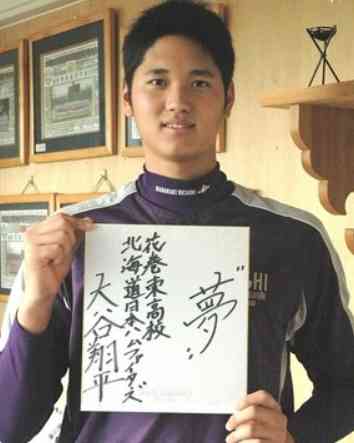 "夢"
花巻東高校
北海道日本ハムファイターズ
大谷翔平
HANAMAKI HIGASHI